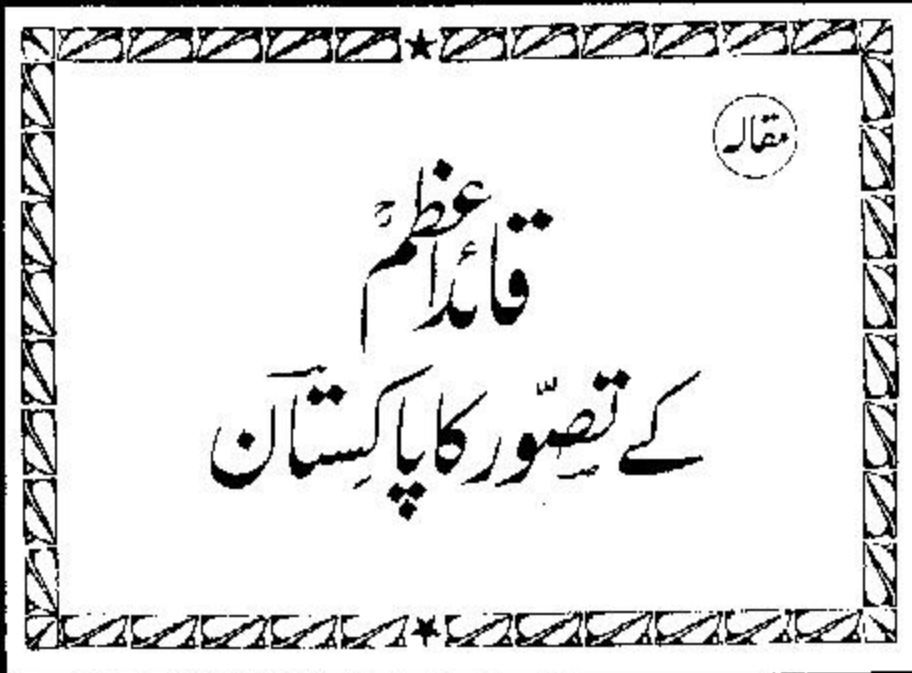 مقالہ
قائداعظمؒ
کے تصوّر کا پاکستان